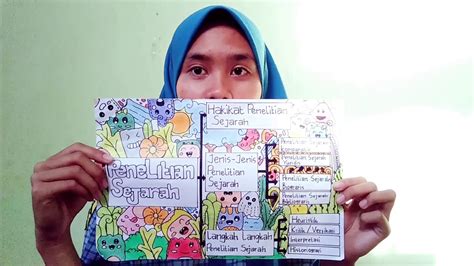 Penelitian
Sejarah
Hakikat Penelitian
Sejarah
Jenis-Jenis
Penelitian
Sejarah
Penelitian Sejarah
Penelitian Sejarah
Penelitian Sejarah
Penelitian Sejarah
Langkah Langkah
Penelitian Sejarah
Heuristik
Kritik / Verifikasi
Interpretasi
Historiografi